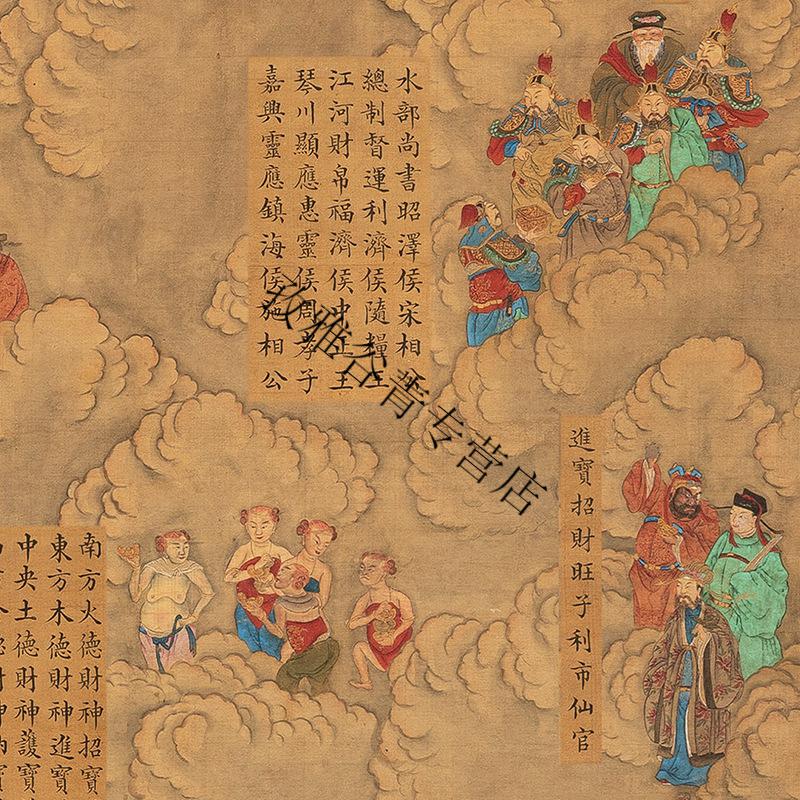 水部尚書昭澤侯宋相
總制督運利濟侯隨糧王
江河財帛福濟侯中正王
琴川顯應惠靈侯周孝子
嘉興靈應鎮海侯施相公
進寶招財旺子利市仙官
南方火德財神招寶
東方木德財神進寶
中央土德財神護寶
孜雅谷菁专营店